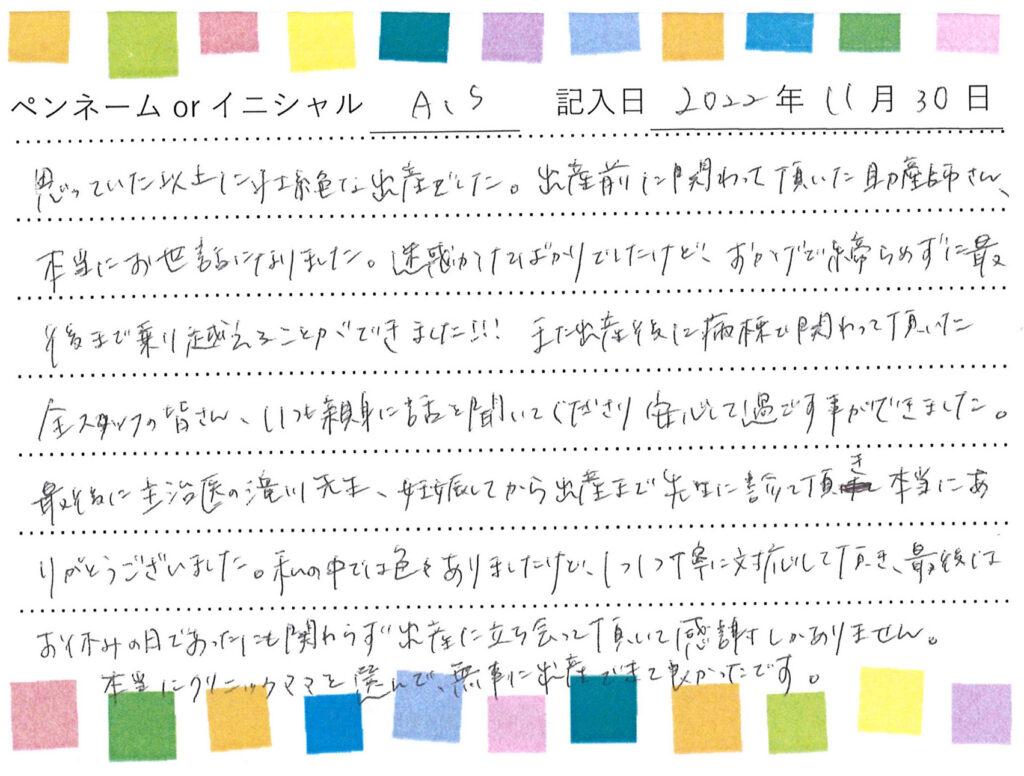 ペンネーム or イニシャル A.S 記入日 2022年 11月 30日
思っていた以上に壮絶な出産でした。出産前に関わって頂いた助産師さん、
本当にお世話になりました。迷惑かけてばかりでしたけど、おかげで諦らめずに最
後まで乗り越えることができました!!! また出産後に病棟で関わって頂いた
全スタッフの皆さん、いつも親身に話を聞いてくださり安心して過ごす事ができました。
最後に主治医の滝川先生、妊娠してから出産まで先生に診て頂き本当にあ
りがとうございました。私の中では色々ありましたけど、1つ1つ丁寧に対応して頂き、最後は
お休みの日であったにも関わらず出産に立ち会って頂いて感謝しかありません。
本当にクリニックママを選んで、無事に出産できて良かったです。